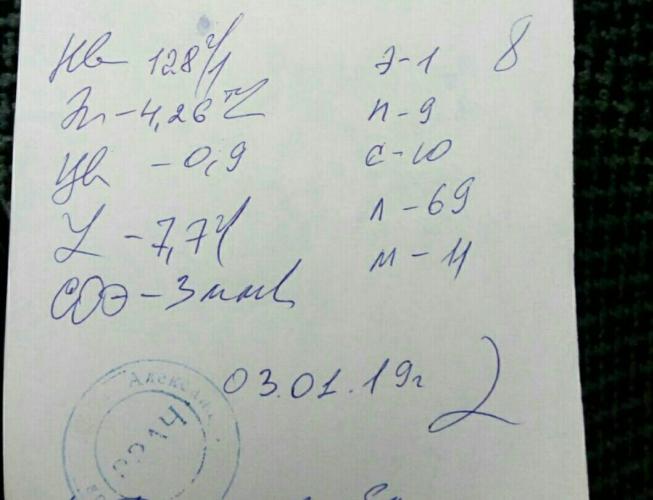 Нв 128 г/л
Эл - 4,26 т/л
Цв - 0,9
L - 7,7 г/л
СОЭ - 3 мм/ч
Э - 1
п - 9
с - 10
л - 69
м - 11
8
03.01.19г
2214